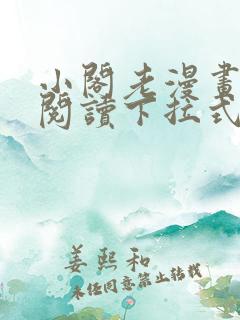 小閣老漫畫
閱讀下拉式
姜熙和
未經同意禁止轉載